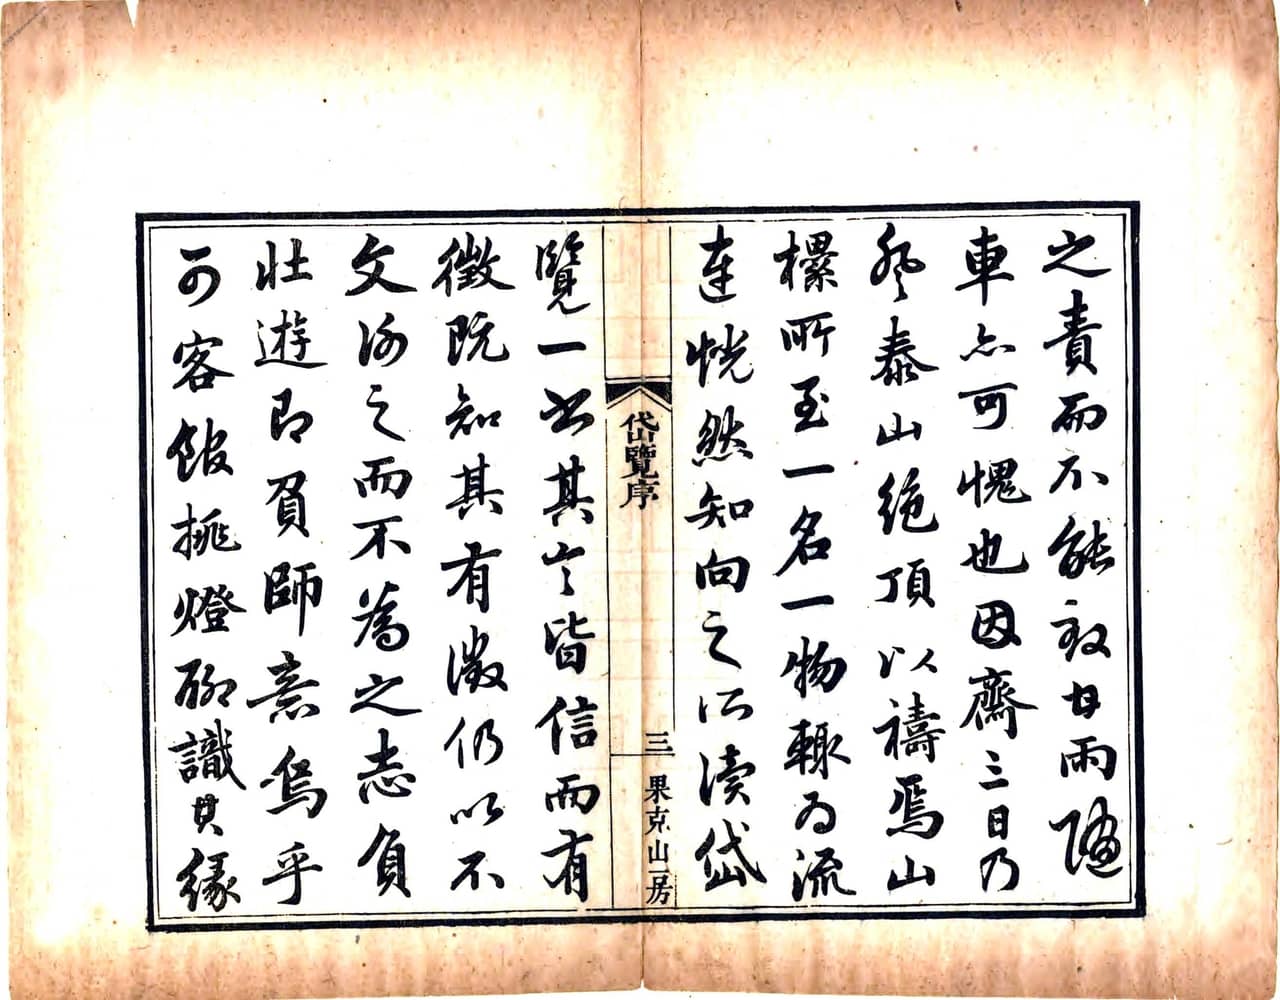 之責而不能致甘雨隨
車亦可愧也因齋三日乃
登泰山絕頂以禱焉山
樏所至一名一物輒為流
連恍然知向之所讀岱
岱覽序
三
果克山房
覽一書其言皆信而有
徵既知其有徵仍以不
文謝之而不為之志負
壯遊即負師意烏乎
可客館挑燈聊識其緣